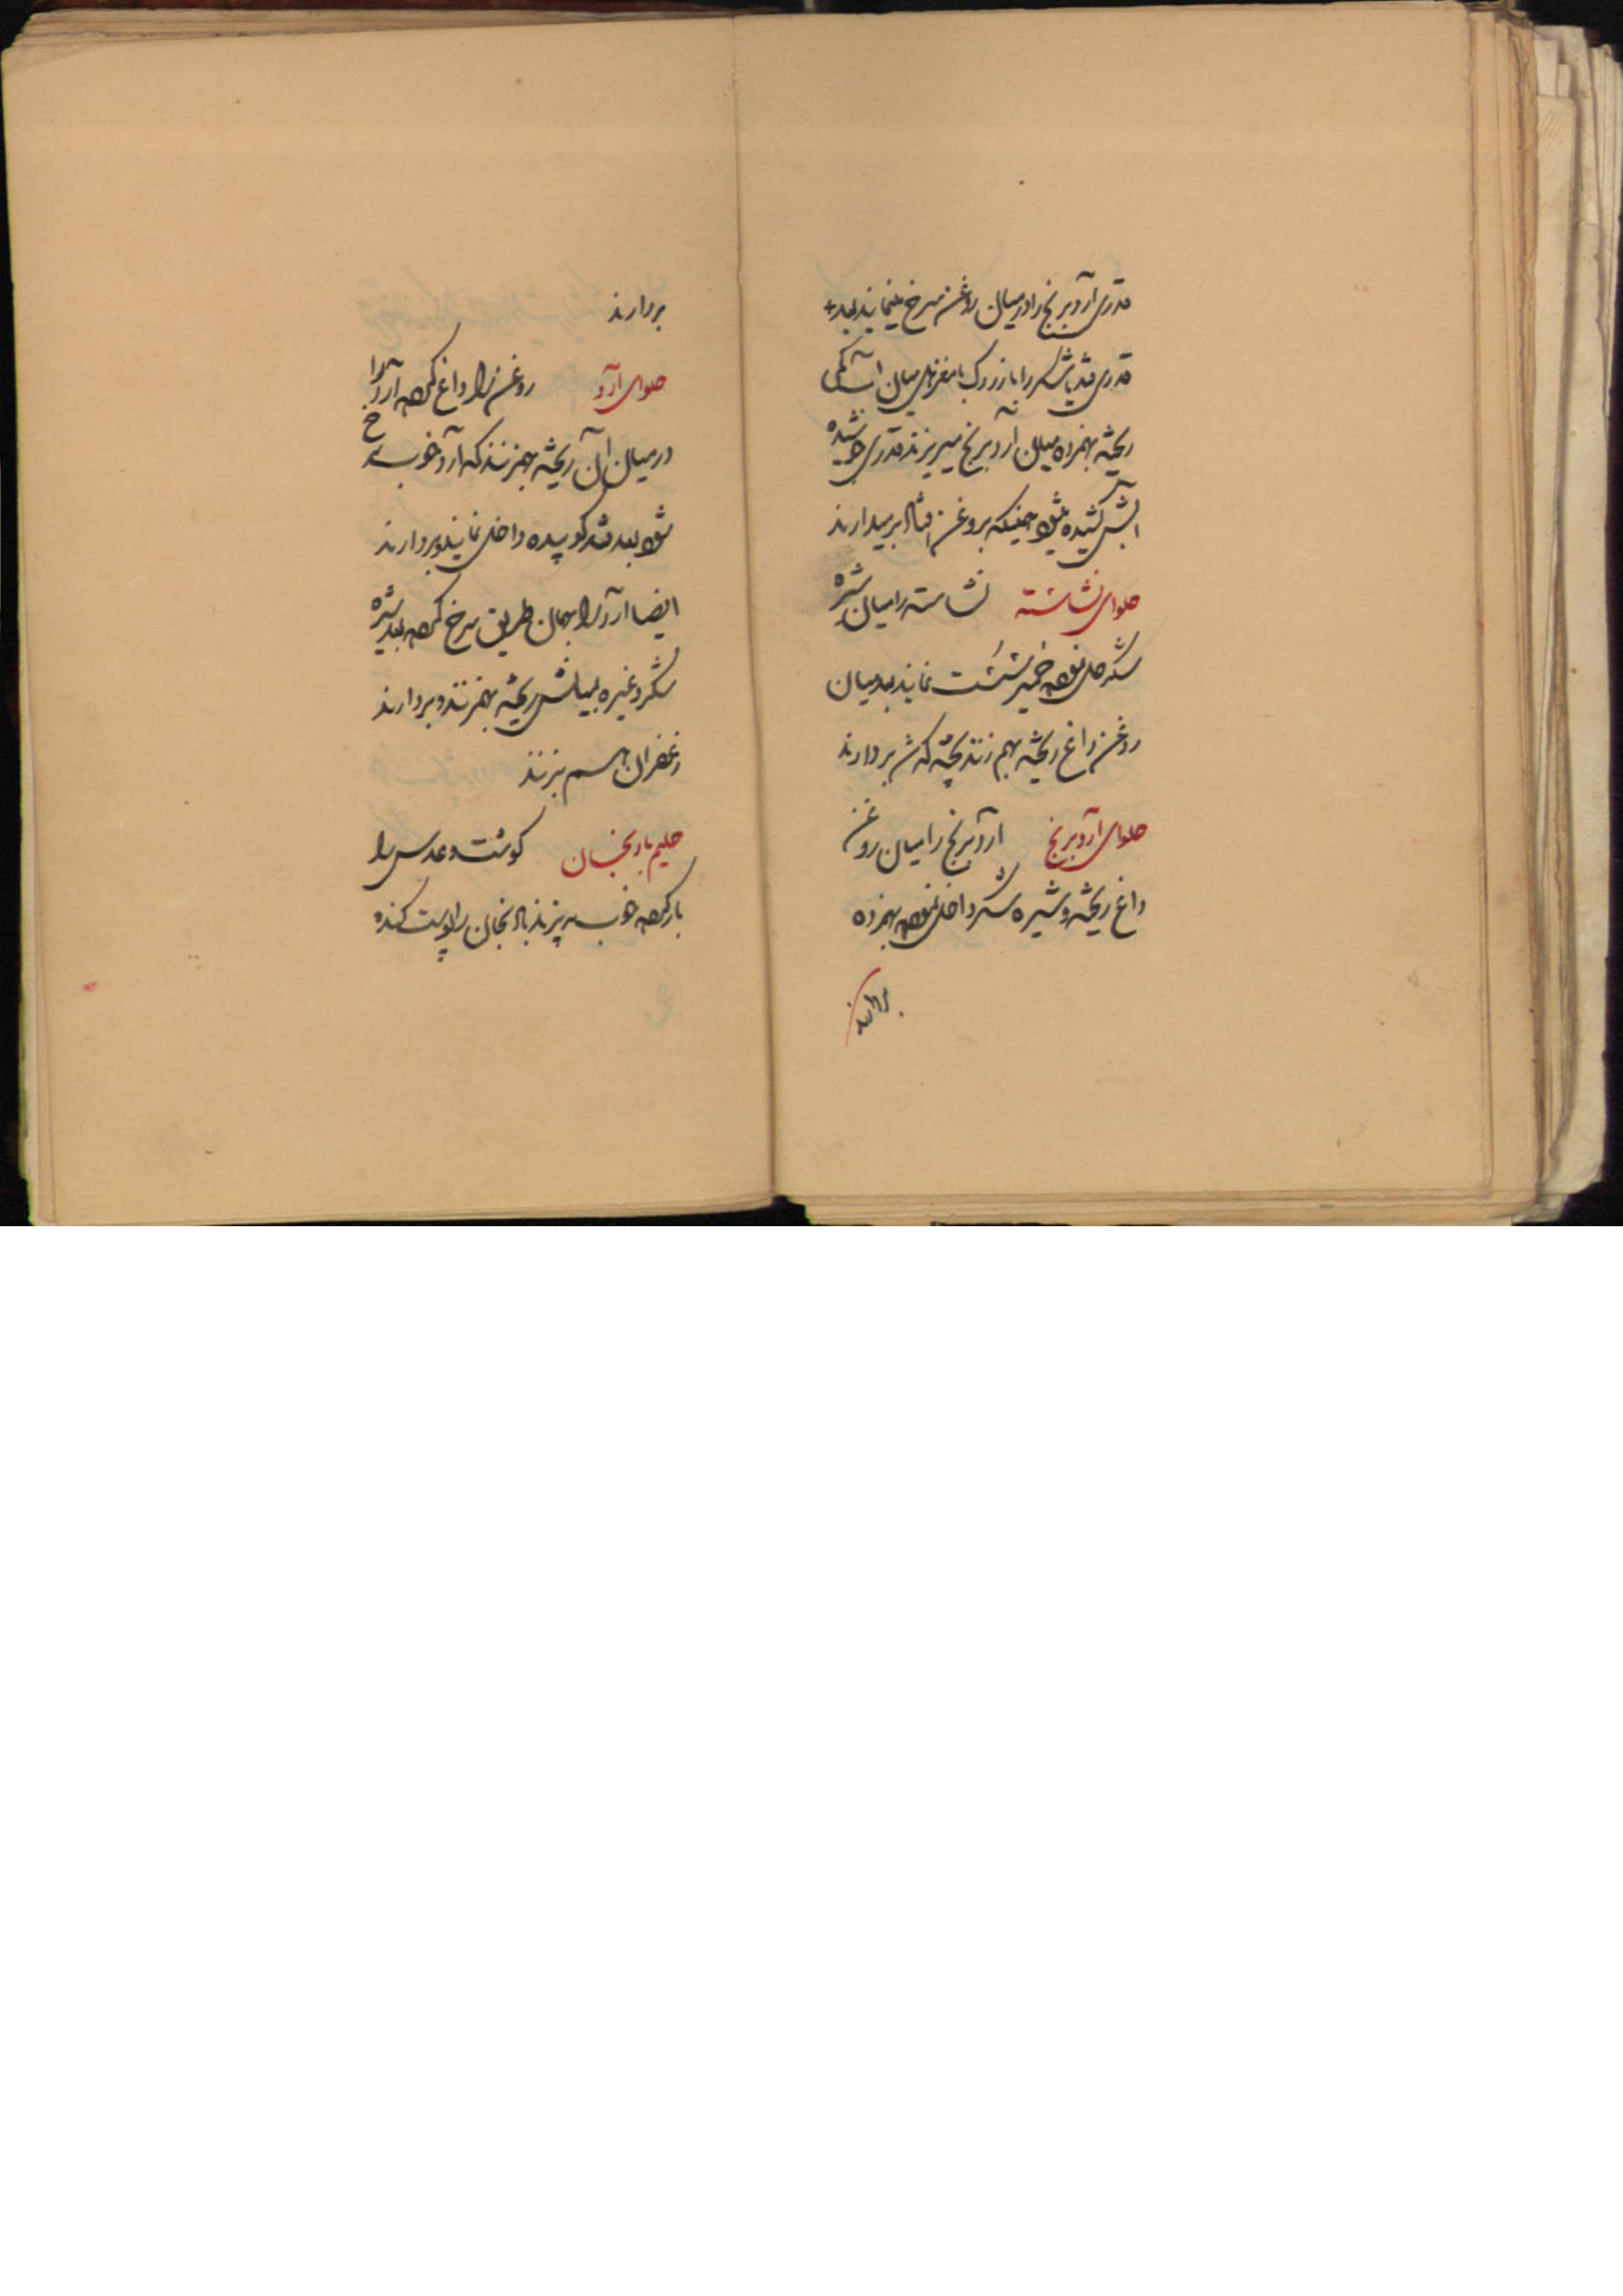 قدری آرد برنج را در میان روغن سرخ مینمایند بعد
قدری قند یا شکر را با زردک با مغزهای میان آب کمی
ریخته بهمزده میان آرد برنج میریزند قدری جوشیده
آبش کشیده میشود همینکه بروغن افتاد برمیدارند
حلوای نشاسته نشاسته را میان شیره
شکر حل نموده خمیر سست نمایند بعد میان
روغن داغ ریخته بهم زنند پخته که شد بردارند
حلوای آرد برنج آرد برنج را میان روغن
داغ ریخته و شیره شکر داخل نموده بهمزده
بردارند
بردارند
حلوای آرد روغن را داغ کرده آرد را
در میان آن ریخته بهمزنند که آرد خوب سرخ
شود بعد قند کوبیده داخل نمایند و بردارند
ایضا آرد را بهمان طریق سرخ کرده بعد شیره
شکر و غیره بمیانش ریخته بهمزنند و بردارند
زعفران هم بزنند
حلیم بادنجان گوشت و عدس را
بار کرده خوب بپزند بادنجان را پوست کنده